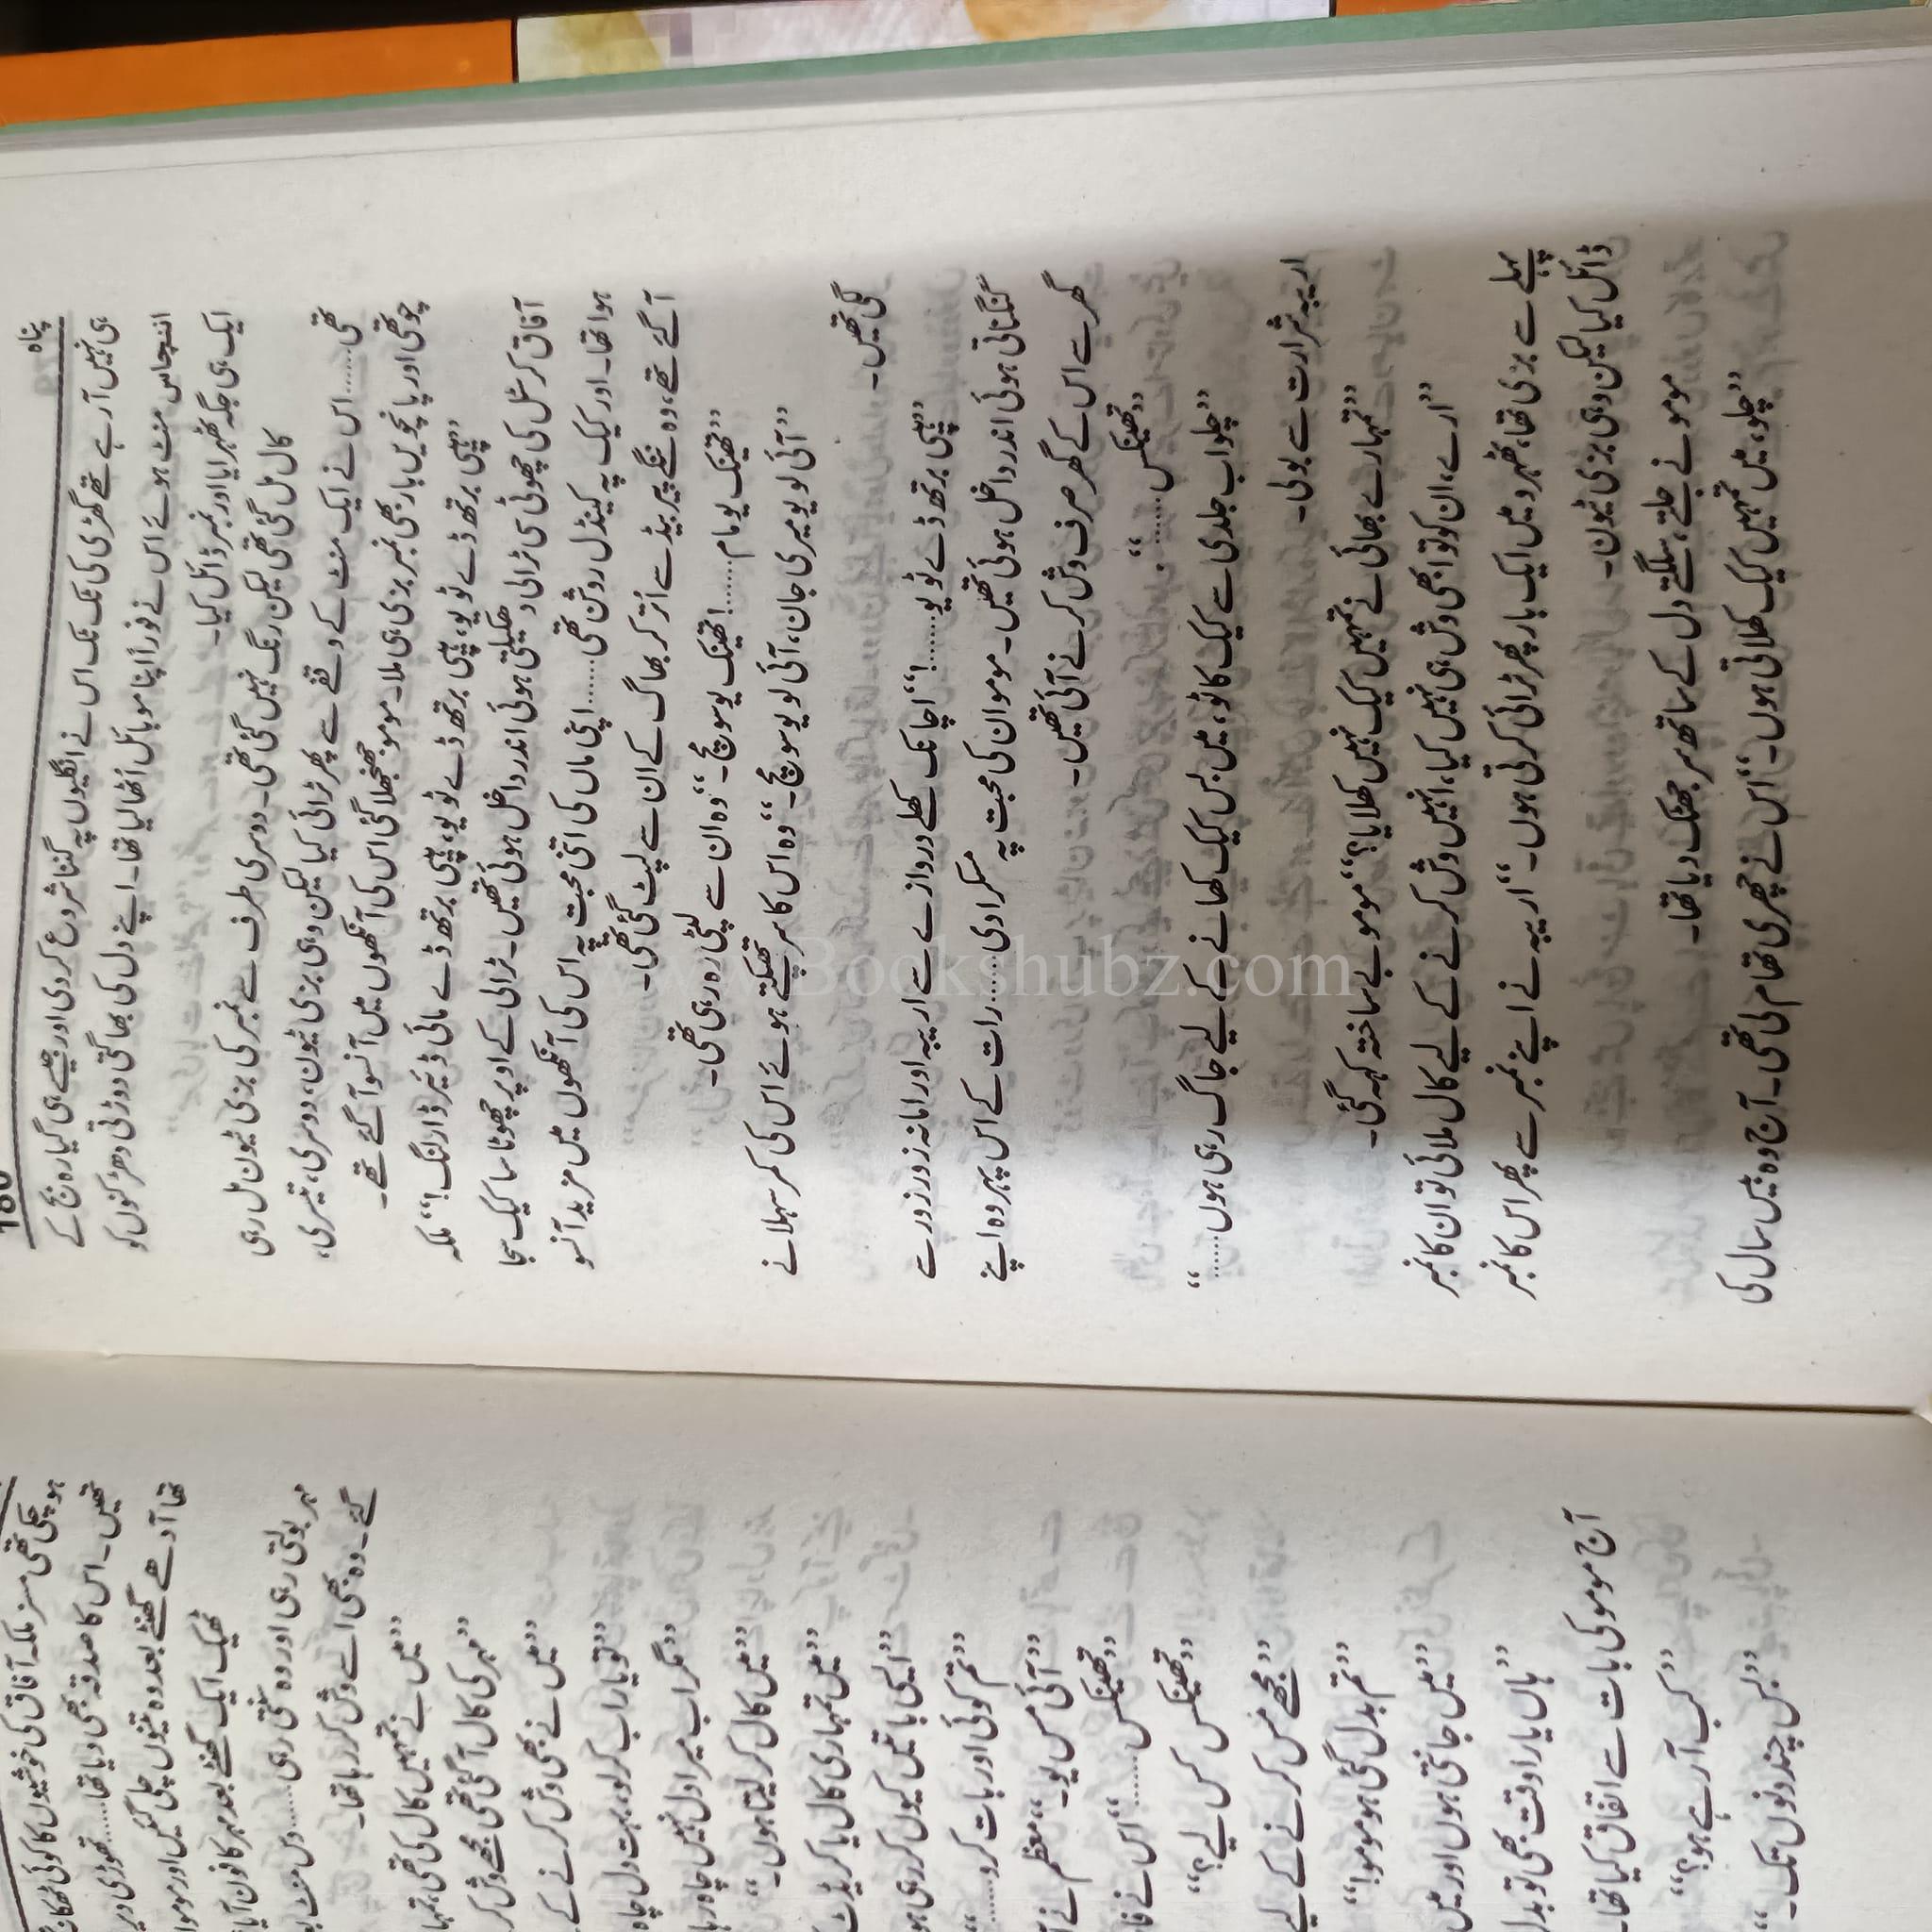 180
پناہ
ہی نہیں آ رہے تھے گھڑی کی ٹک ٹک اس نے انگلیوں پہ گننا شروع کر دی اور جیسے ہی گیارہ بج کے
انسٹھ منٹ ہوئے اس نے فوراً اپنا موبائل اٹھا لیا تھا۔ اپنے دل کی بھاگتی دوڑتی دھڑکنوں کو
ایک ہی جگہ ٹھہرایا اور نمبر ڈائل کیا۔
کال مل گئی تھی لیکن رنگ نہیں گئی تھی۔ دوسری طرف سے نمبر کی بزی ٹیون مل رہی
تھی...... اس نے ایک منٹ کے وقفے سے پھر ٹرائی کیا لیکن وہی بزی ٹیون، دوسری، تیسری،
چوتھی اور پانچویں بار بھی نمبر بزی ہی ملا۔ مومو جھنجھلا گئی اس کی آنکھوں میں آنسو آ گئے تھے۔
”ہیپی برتھ ڈے ٹو یو، ہیپی برتھ ڈے ٹو یو، ہیپی برتھ ڈے مائی ڈئیر ڈارلنگ!“ ملکہ
آفاق کرسٹل کی چھوٹی سی ٹرالی دھکیلتی ہوئی اندر داخل ہوئی تھیں۔ ٹرالی کے اوپر چھوٹا سا کیک سجا
ہوا تھا۔ اور کیک پہ کینڈل روشن تھی...... اپنی ماں کی اتنی محبت پہ اس کی آنکھوں میں مزید آنسو
آ گئے تھے، وہ ننگے پیر بیڈ سے اتر کر بھاگ کے ان سے لپٹ گئی تھی۔
”تھینک یو مام......! تھینک یو سو مچ۔“ وہ ان سے لپٹی رو رہی تھی۔
”آئی لو یو میری جان، آئی لو یو سو مچ۔“ وہ اس کا سر تھپکتے ہوئے اس کی کمر سہلانے
لگی تھیں۔
”ہیپی برتھ ڈے ٹو یو......!“ اچانک کھلے دروازے سے اریبہ اور امانہ زور زور سے
گنگناتی ہوئی اندر داخل ہوئی تھیں۔ مومو ان کی محبت پہ مسکرا دی...... رات کے اس پہر وہ اپنے
گھر سے اس کے گھر صرف وش کرنے آئی تھیں۔
”تھینکس......“
”چلو اب جلدی سے کیک کاٹو، میں بس کیک کھانے کے لیے جاگ رہی ہوں......“
اریبہ شرارت سے بولی۔
”تمہارے بھائی نے تمہیں کیک نہیں کھلایا؟“ مومو بے ساختہ کہہ گئی۔
”ارے، ان کو تو ابھی وش ہی نہیں کیا، انہیں وش کرنے کے لیے کال ملائی تو ان کا نمبر
پہلے سے بزی تھا، ٹھہرو میں ایک بار پھر ٹرائی کرتی ہوں۔“ اریبہ نے اپنے نمبر سے پھر اس کا نمبر
ڈائل کیا لیکن وہی بزی ٹیون۔
مومو نے جلتے، سلگتے دل کے ساتھ سر جھٹک دیا تھا۔
”چلو، میں تمہیں کیک کھلاتی ہوں۔“ اس نے چھری تھام لی تھی۔ آج وہ بیس سال کی
ہو چکی تھی مسز ملکہ آفاق کی خوشیوں کا کوئی
تھیں۔ اس کا صدقہ بھی دیا تھا...... تھوڑی دیر
تھا آدھے گھنٹے بعد وہ تینوں چلی گئیں اور مومو
ٹھیک ایک گھنٹے بعد مہر کا فون آیا
مہر بولتی رہی اور وہ سنتی رہی...... دس منٹ
گئے۔ وہ بھی اسے وش کر رہا تھا۔
”میں نے تمہیں کال کی تھی، تمہا
”مہر کی کال آ گئی تھی مجھے وش کر
”میں نے بھی وش کرنے کے
”تو یار اب کر لو، بہت دل چاہ
”مگر اب میرا دل نہیں چاہ رہا
”میں کال کر لیتا ہوں۔“
”میں تمہاری کال یا کریڈٹ
”ایسی باتیں کیوں کر رہی ہو
”تم کوئی اور بات کرو......“
”آئی مس یو۔“ معظم نے آ
”تھینکس......“ اس نے فا
”تھینکس کس لیے؟“
”مجھے مس کرنے کے لیے
”تم بدل گئی ہو مومو!“
”میں جانتی ہوں اور میں
”ہاں یار! وقت بھی تو بدل
آج مومو کی بات سے اتفاق کیا تھا۔
”کب آ رہے ہو؟“
”بس چند دنوں تک۔“
Bookshubz.com